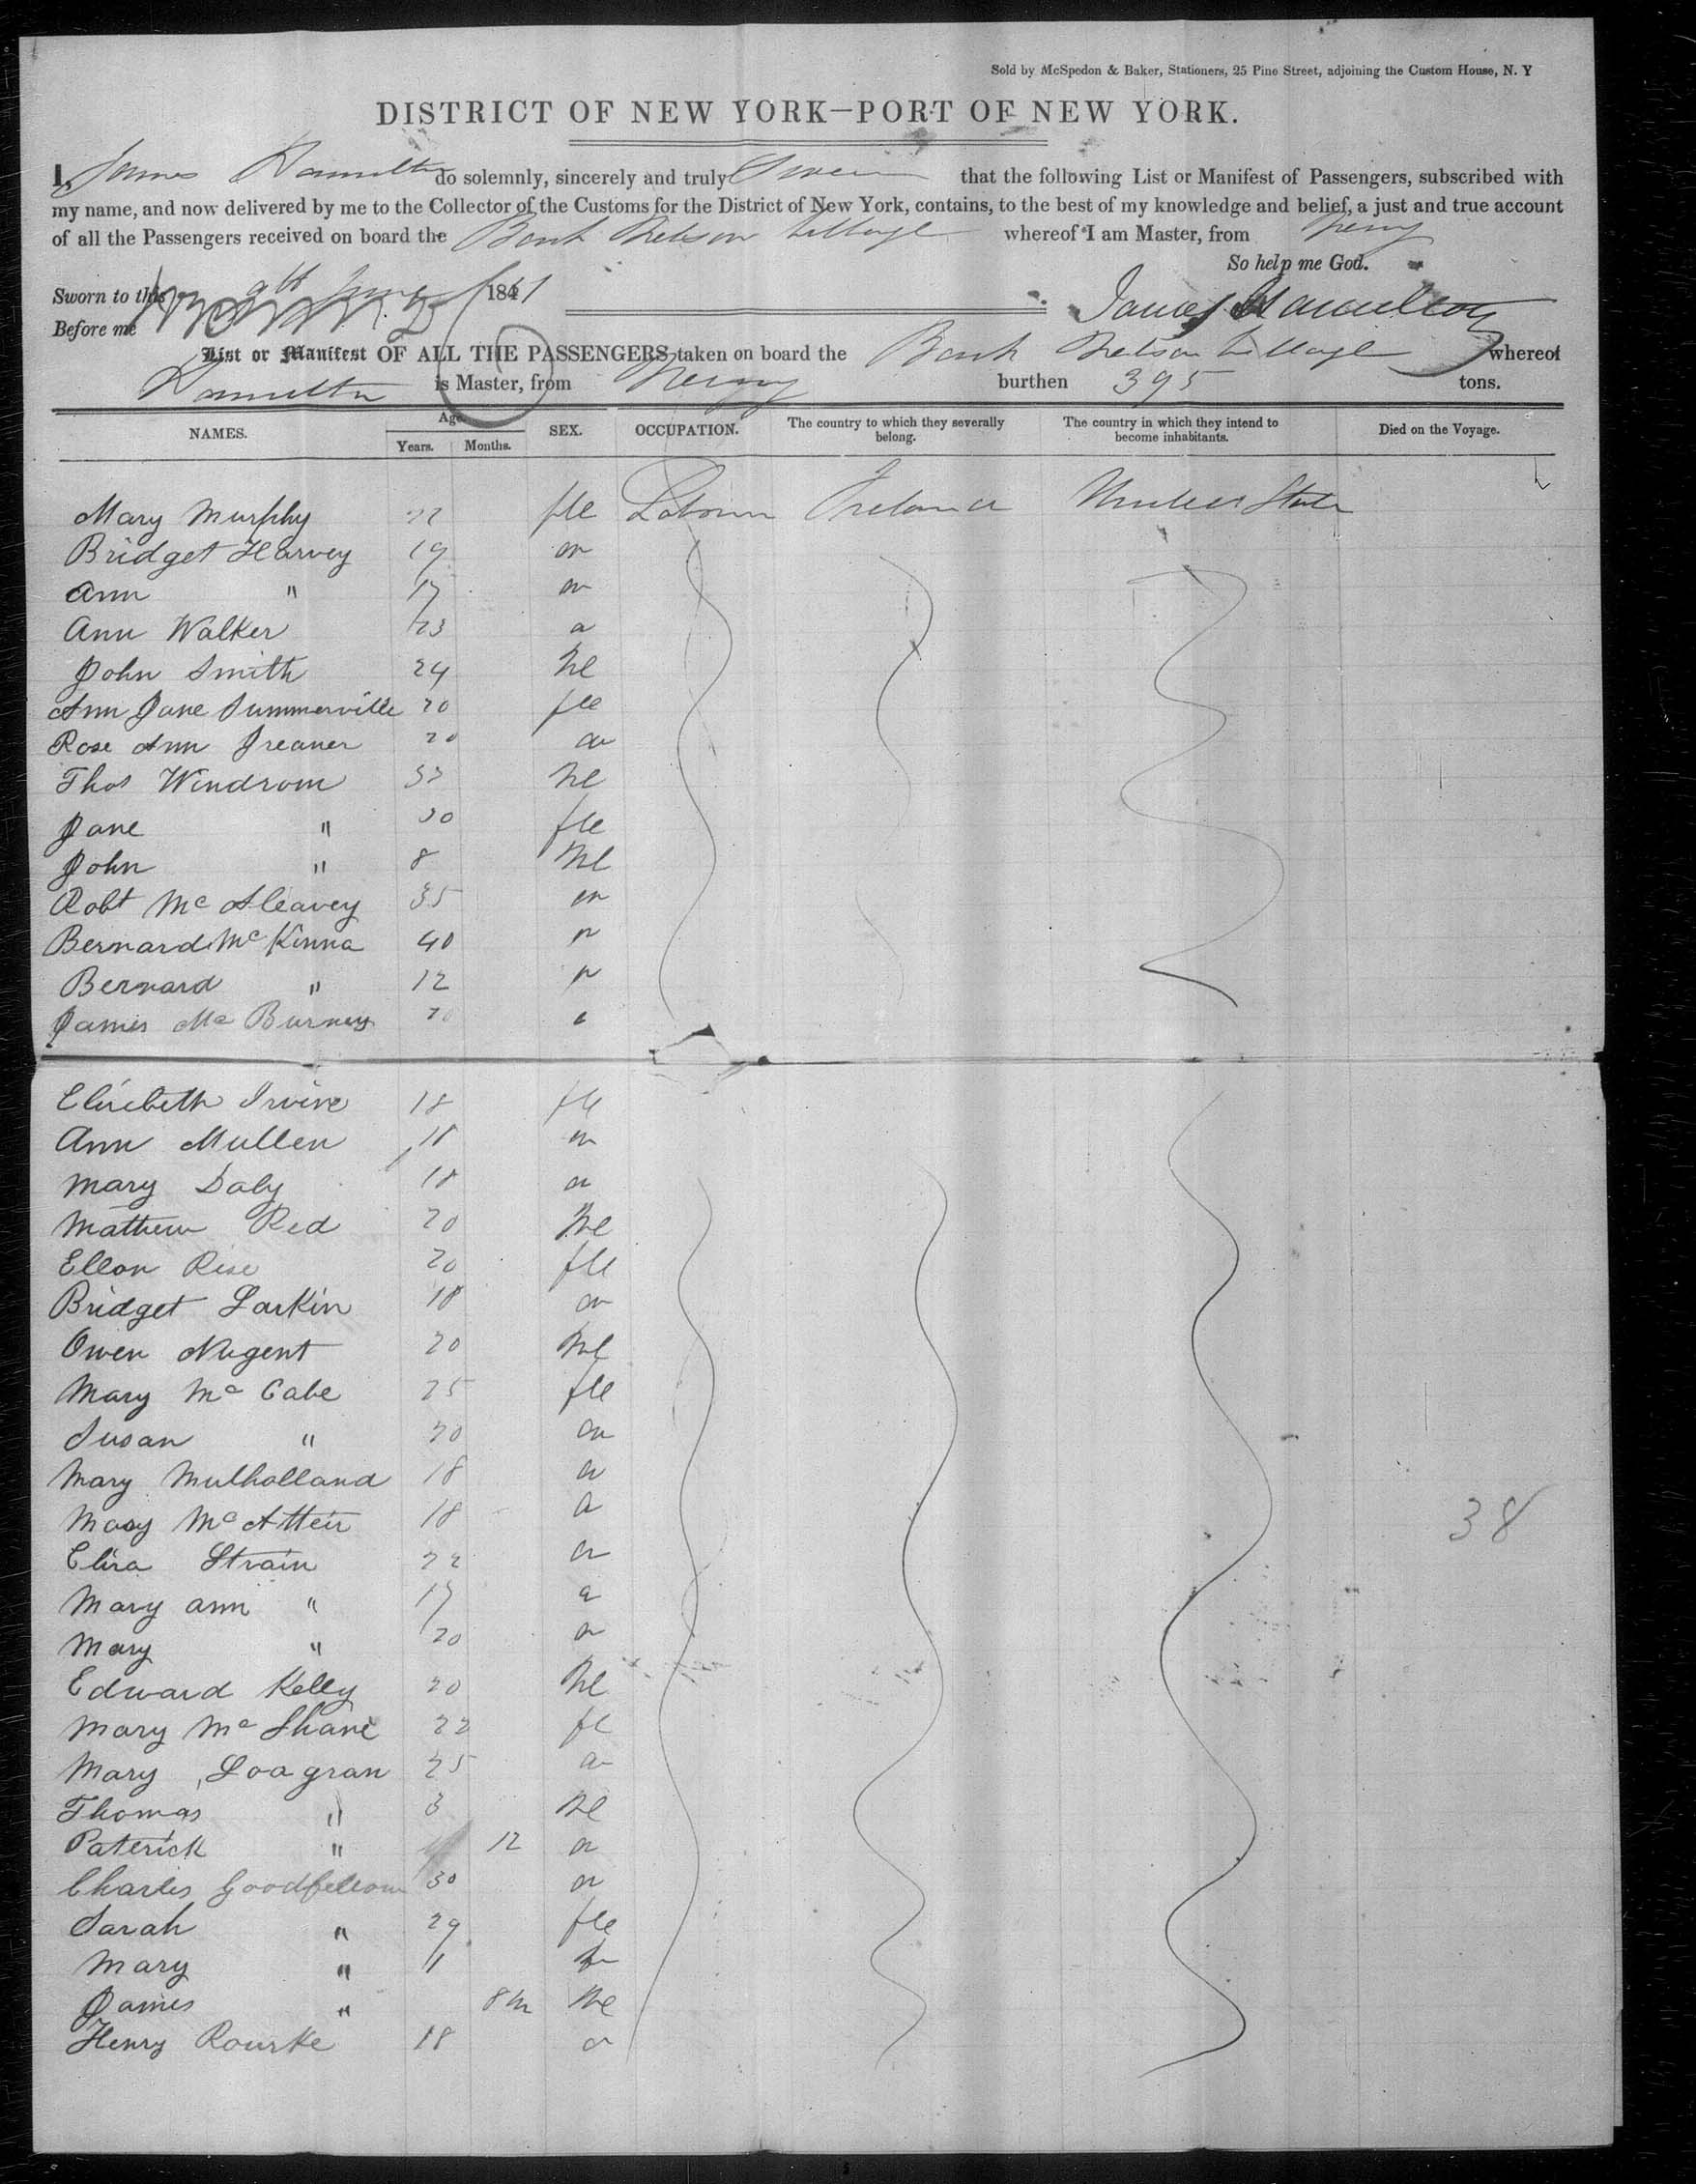 Sold by McSpedon & Baker, Stationers, 25 Pine Street, adjoining the Custom House, N. Y
DISTRICT OF NEW YORK—PORT OF NEW YORK.
I, James Hamilton do solemnly, sincerely and truly Swear that the following List or Manifest of Passengers, subscribed with
my name, and now delivered by me to the Collector of the Customs for the District of New York, contains, to the best of my knowledge and belief, a just and true account
of all the Passengers received on board the Bark Nelson Village whereof I am Master, from Newry
So help me God.
Sworn to this 9th June 1841
James Hamilton
Before me
List or Manifest OF ALL THE PASSENGERS taken on board the Bark Nelson Village whereof
Hamilton is Master, from Newry burthen 395 tons.
NAMES. Age Years. Months. SEX. OCCUPATION. The country to which they severally belong. The country in which they intend to become inhabitants. Died on the Voyage.
Mary Murphy 22 fle Labourer Ireland United States
Bridget Harvey 19
Ann " 17
Ann Walker 23
John Smith 24 Ml
Ann Jane Summerville 20 fle
Rose Ann Greaner 20
Thos Windrom 33 Ml
Jane " 30 fle
John " 8 Ml
Robt Mc Aleavey 35
Bernard Mc Kinna 40
Bernard " 12
James Mc Burney 20
Elizebeth Irvine 18 fle
Ann Mullen 18
Mary Daly 18
Mathew Red 20 Ml
Ellon Rice 20 fle
Bridget Larkin 18
Owen Nugent 20 Ml
Mary Mc Cabe 25 fle
Susan " 20
Mary Mulholland 18
Mary Mc Atteir 18
38
Eliza Strain 22
Mary ann " 17
Mary " 20
Edward Kelly 20 Ml
Mary Mc Shane 22 fl
Mary Loagran 25
Thomas " 3 Ml
Paterick " 12
Charles Goodfellow 30
Sarah " 29 fle
Mary " 11
James " 8 m Ml
Henry Rourke 18